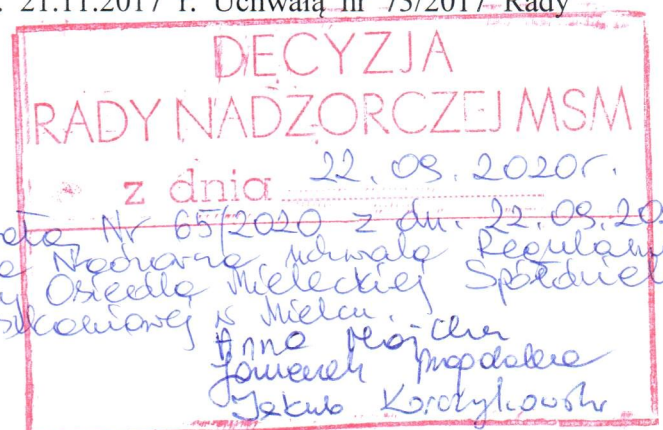 21.11.2017 r. Uchwałą nr 73/2017 Rady
DECYZJA
RADY NADZORCZEJ MSM
z dnia 22.09.2020r.
Nr 65/2020 z dn. 22.09.20
Nadzorcza uchwala Regulamin
Osiedla Mieleckiej Spółdziel
w Mielcu.
Anna
Magdalena
Jakub Korczykowski